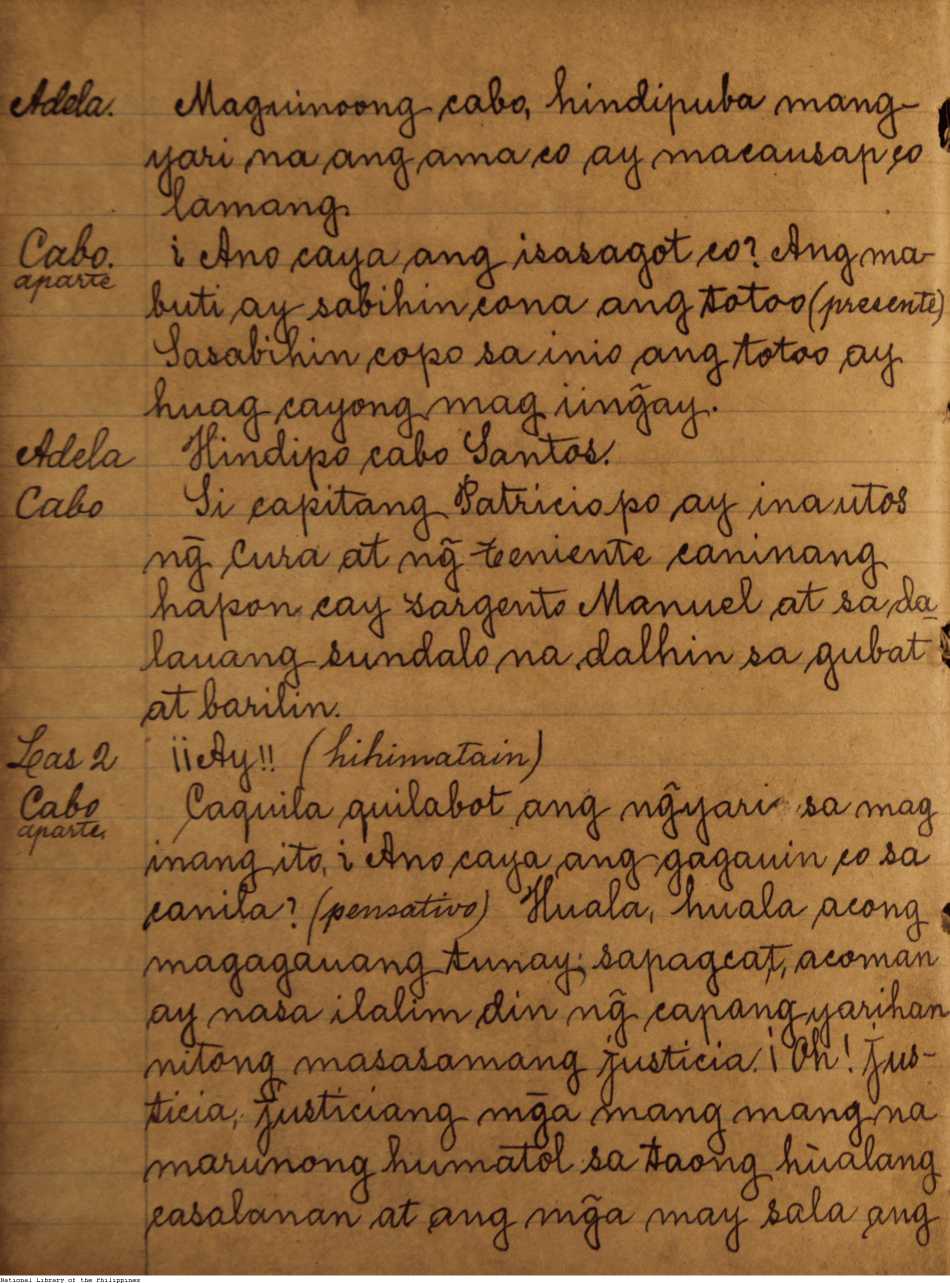 Adela. Maguinoong cabo, hindipuba mang-
yari na ang ama co ay macausap co
lamang.
Cabo. ¿ Ano caya ang isasagot co? Ang ma-
aparte buti ay sabihin cona ang totoo (presente)
Sasabihin copo sa inio ang totoo ay
huag cayong mag iing̃ay.
Adela Hindipo cabo Santos.
Cabo Si capitang Patricio po ay ina utos
ng̃ Cura at ng̃ teniente caninang
hapon cay sargento Manuel at sa da
lauang sundalo na dalhin sa gubat
at barilin.
Las 2 ¡¡Ay!! (hihimatain)
Cabo Caquila quilabot ang ng̃yari sa mag
aparte, inang ito, ¿ Ano caya ang gagauin co sa
canila? (pensativo) Huala, huala acong
magagauang tunay; sapagcat, acoman
ay nasa ilalim din ng̃ capang yarihan
nitong masasamang justicia. ¡ Oh! jus-
ticia, justiciang mg̃a mang mang na
marunong humatol sa taong hualang
casalanan at ang mg̃a may sala ang
National Library of the Philippines